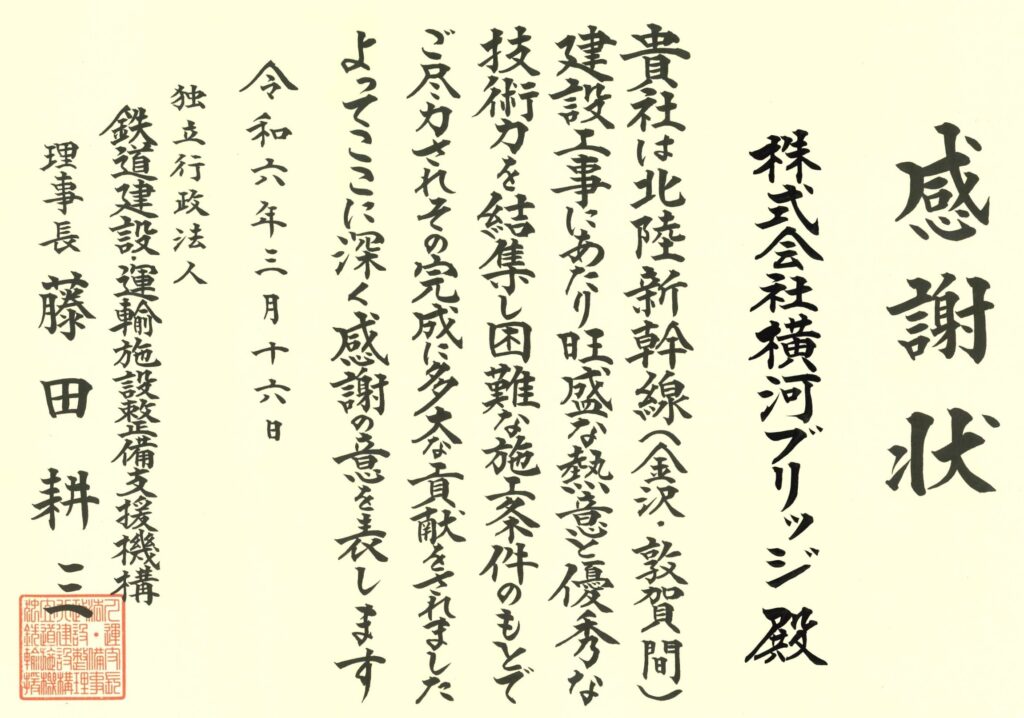 感謝状
株式会社横河ブリッジ 殿
貴社は北陸新幹線(金沢・敦賀間)
建設工事にあたり旺盛な熱意と優秀な
技術力を結集し困難な施工条件のもとで
ご尽力されその完成に多大な貢献をされました
よってここに深く感謝の意を表します
令和六年三月十六日
独立行政法人
鉄道建設・運輸施設整備支援機構
理事長 藤田耕三